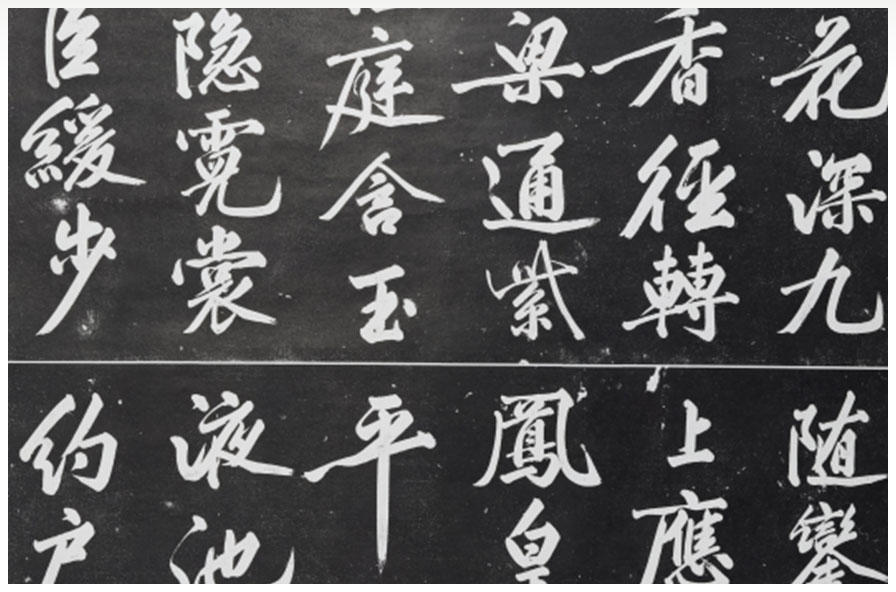 花深九
香徑轉
梁通紫
庭含玉
隐霓裳
臣緩步
随鑾
上應
鳳皇
平
液池
约户